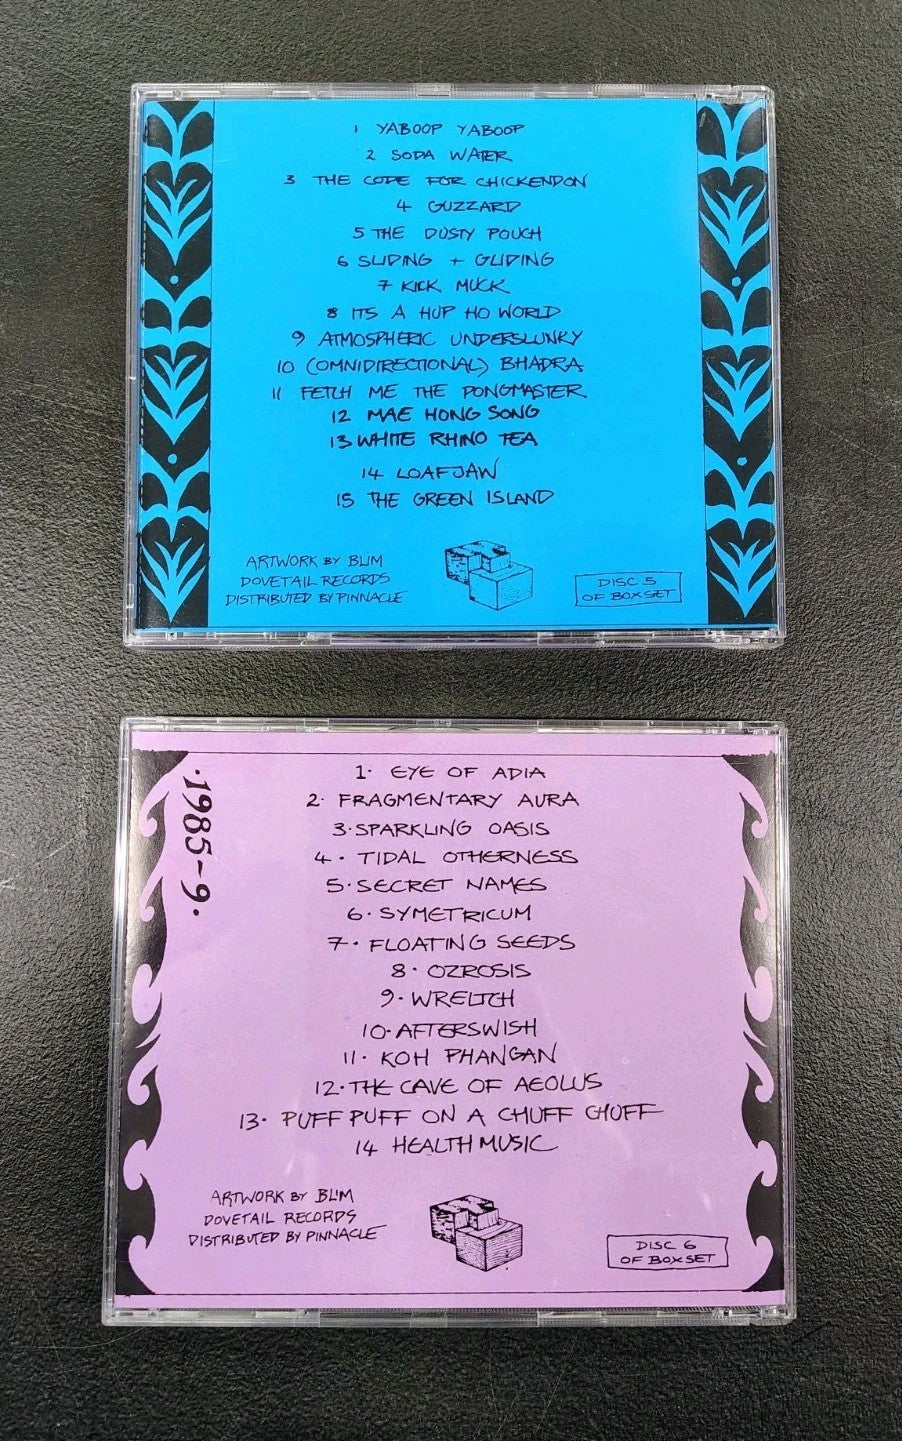 1 YABOOP YABOOP
2 SODA WATER
3 THE CODE FOR CHICKENDON
4 GUZZARD
5 THE DUSTY POUCH
6 SLIDING + GLIDING
7 KICK MUCK
8 ITS A HUP HO WORLD
9 ATMOSPHERIC UNDERSLUNKY
10 (OMNIDIRECTIONAL) BHADRA
11 FETCH ME THE PONGMASTER
12 MAE HONG SONG
13 WHITE RHINO TEA
14 LOAFJAW
15 THE GREEN ISLAND
ARTWORK BY BLIM
DOVETAIL RECORDS
DISTRIBUTED BY PINNACLE
DISC 5
OF BOXSET
·1985-9·
1· EYE OF ADIA
2· FRAGMENTARY AURA
3·SPARKLING OASIS
4· TIDAL OTHERNESS
5·SECRET NAMES
6· SYMETRICUM
7· FLOATING SEEDS
8· OZROSIS
9· WRELTCH
10·AFTERSWISH
11· KOH PHANGAN
12·THE CAVE OF AEOLUS
13· PUFF PUFF ON A CHUFF CHUFF
14 HEALTH MUSIC
ARTWORK BY BLIM
DOVETAIL RECORDS
DISTRIBUTED BY PINNACLE
DISC 6
OF BOXSET